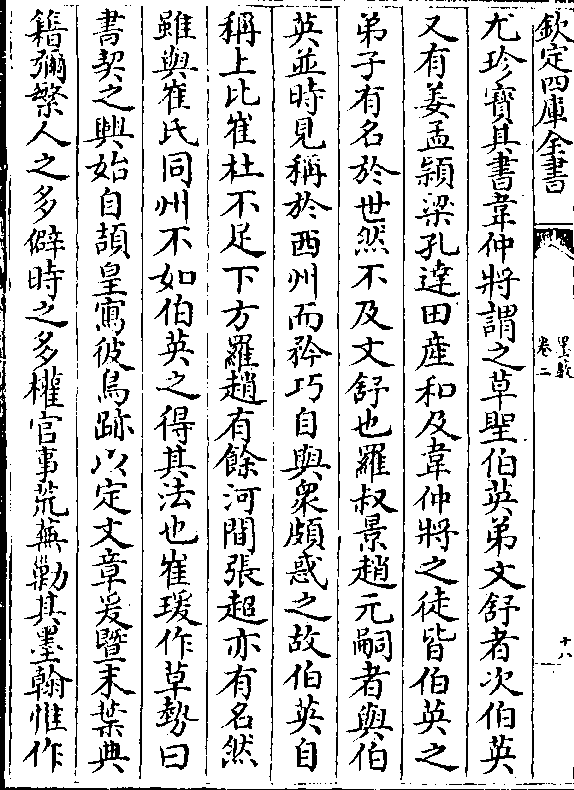 欽定四庫全書
墨藪
卷二
十八
尤珍寳其書韋仲將謂之草聖伯英弟文舒者次伯英
又有姜孟頴梁孔逹田彦和及韋仲將之徒皆伯英之
弟子有名於世然不及文舒也羅叔景趙元嗣者與伯
英並時見稱於西州而矜巧自與衆頗惑之故伯英自
稱上比崔杜不足下方羅趙有餘河間張超亦有名然
雖與崔氏同州不如伯英之得其法也崔瑗作草勢曰
書契之興始自頡皇寫彼鳥跡以定文章爰暨末葉典
籍彌繁人之多僻時之多權官事荒蕪勦其墨翰惟作